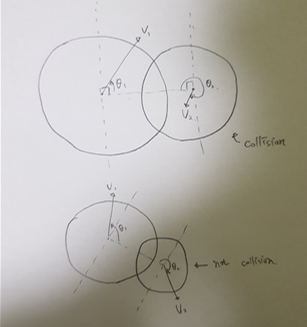 V₁
θ₁
θ₂
V₂
collision
V₁
θ₁
θ₂
not collision
V₂